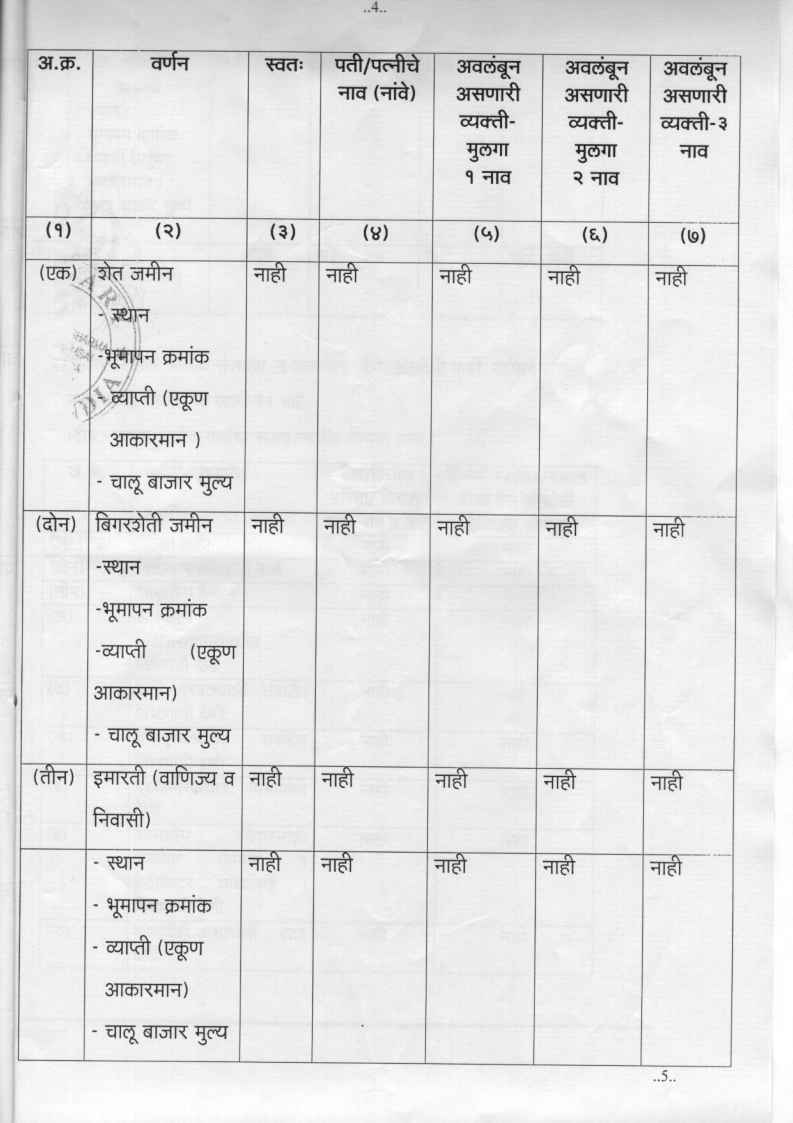 ..4..
अ.क्र. वर्णन स्वतः पती/पत्नीचे अवलंबून अवलंबून अवलंबून
नाव (नांवे) असणारी असणारी असणारी
व्यक्ती- व्यक्ती- व्यक्ती-३
मुलगा मुलगा नाव
१ नाव २ नाव
(१) (२) (३) (४) (५) (६) (७)
(एक) शेत जमीन नाही नाही नाही नाही नाही
- स्थान
-भूमापन क्रमांक
- व्याप्ती (एकूण
आकारमान )
- चालू बाजार मुल्य
(दोन) बिगरशेती जमीन नाही नाही नाही नाही नाही
-स्थान
-भूमापन क्रमांक
-व्याप्ती (एकूण
आकारमान)
- चालू बाजार मुल्य
(तीन) इमारती (वाणिज्य व नाही नाही नाही नाही नाही
निवासी)
- स्थान नाही नाही नाही नाही नाही
- भूमापन क्रमांक
- व्याप्ती (एकूण
आकारमान)
- चालू बाजार मुल्य
..5..